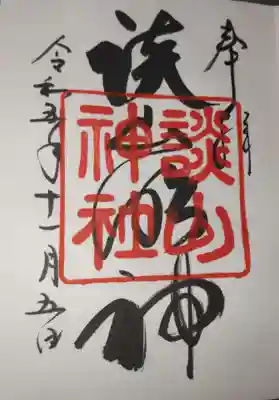 奉拝
談 明神
談山
神社
令和五年十一月五日